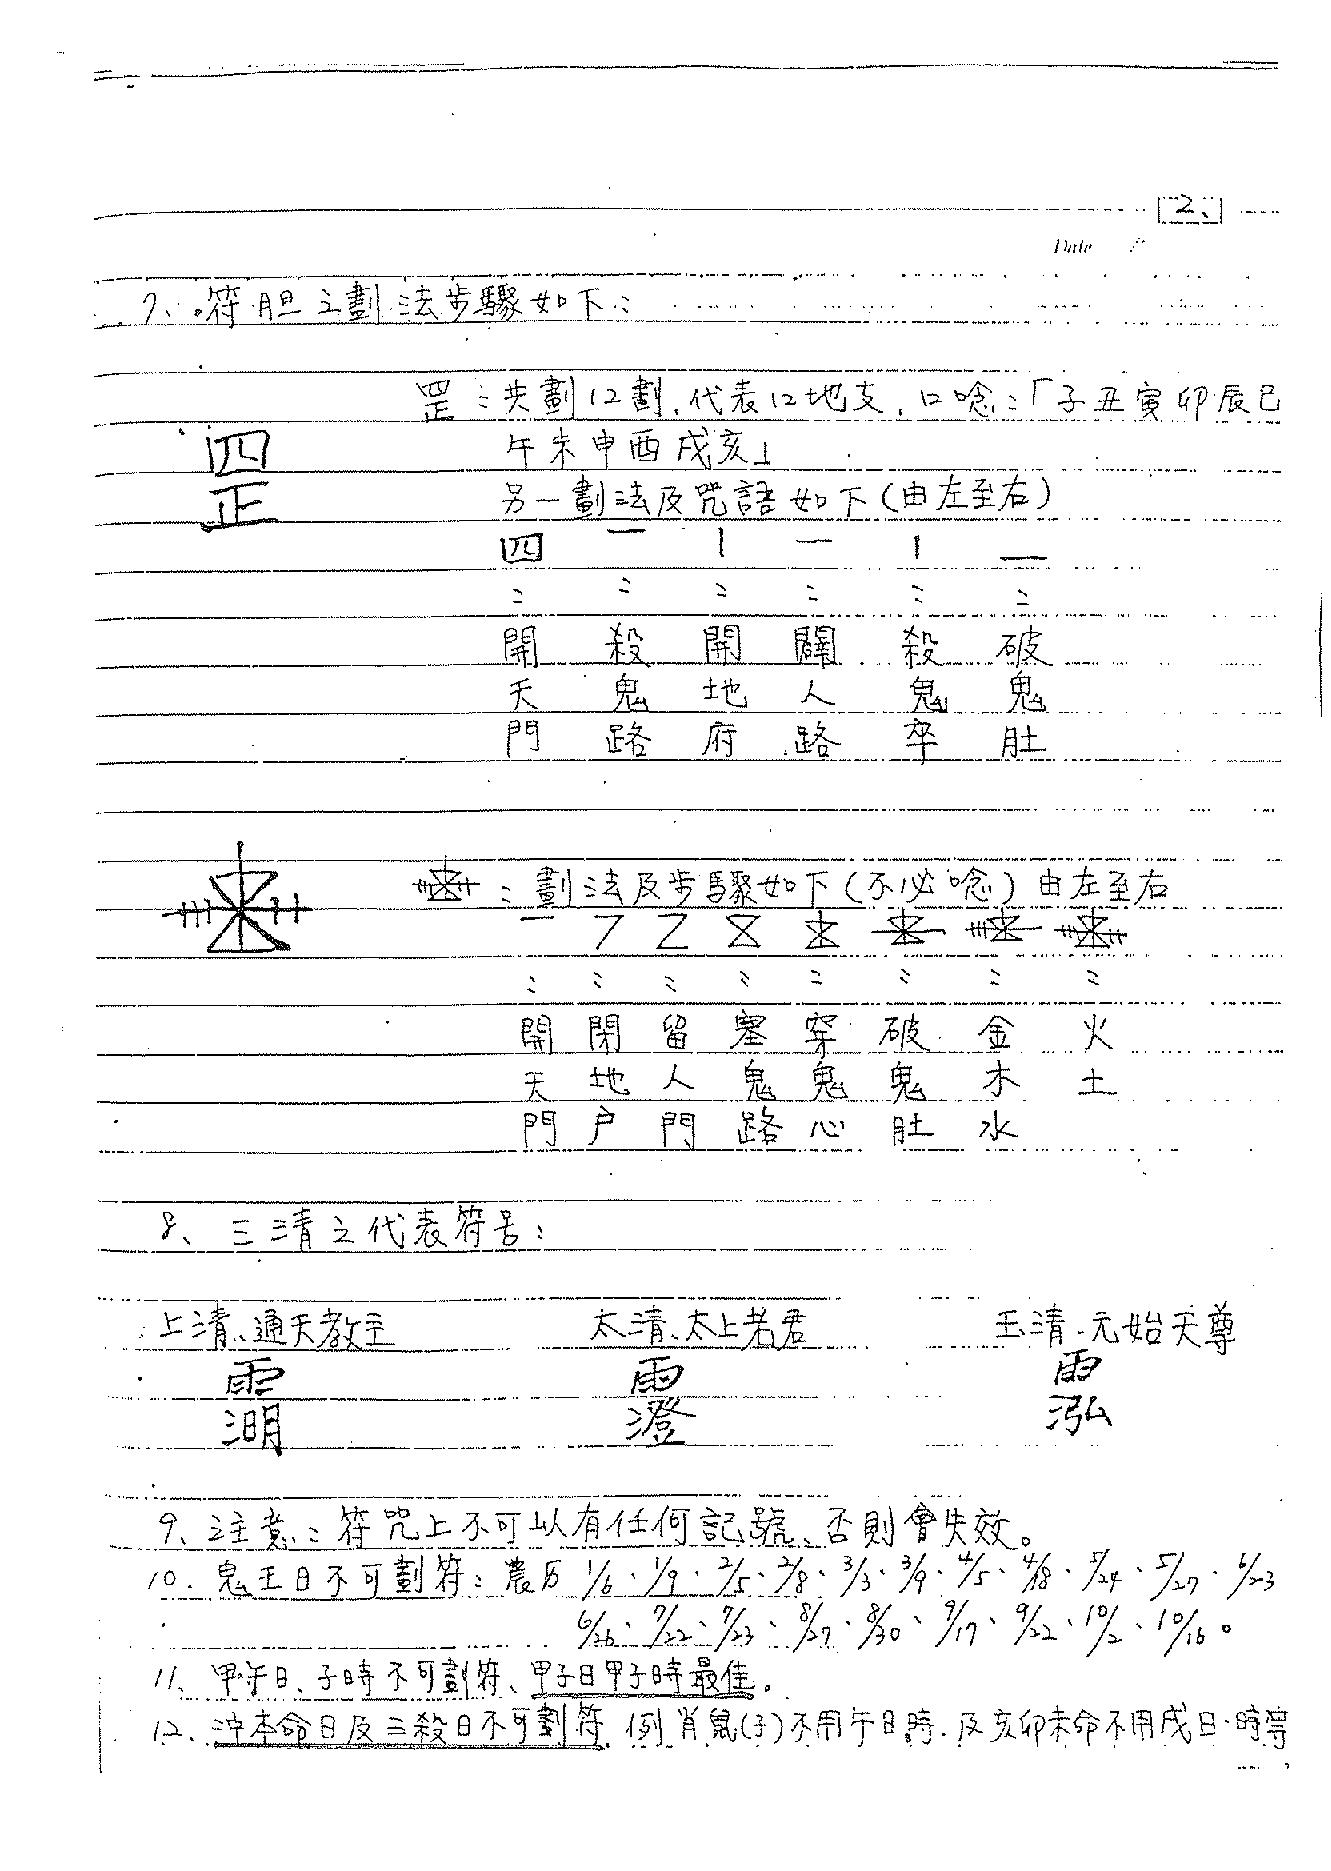 2、
Date
7、符胆之劃法步驟如下:
罡:共劃12劃,代表12地支,口唸:「子丑寅卯辰巳
午未申酉戌亥」
罡
另一劃法及咒語如下(由左至右)
四 一 丨 一 丨 一
: : : : : :
開 殺 開 闢 殺 破
天 鬼 地 人 鬼 鬼
門 路 府 路 卒 肚
:劃法及步驟如下(不必唸)由左至右
: : : : : : : :
開 閉 留 塞 穿 破 金 火
天 地 人 鬼 鬼 鬼 木 土
門 户 門 路 心 肚 水
8、三清之代表符号:
上清、通天教主 太清、太上老君 玉清、元始天尊
雨 雨 雨
湖 澄 泓
9、注意:符咒上不可以有任何記號、否則會失效。
10、鬼王日不可劃符:農历 1/6、1/9、2/5、2/8、3/3、3/9、4/5、4/18、5/24、5/27、6/23
6/26、7/22、7/23、8/27、8/30、9/17、9/22、10/2、10/16。
11、甲午日、子時不可劃符、甲子日甲子時最佳。
12、沖本命日及三殺日不可劃符,例肖鼠(子)不用午日時.及亥卯未命不用戌日、時等